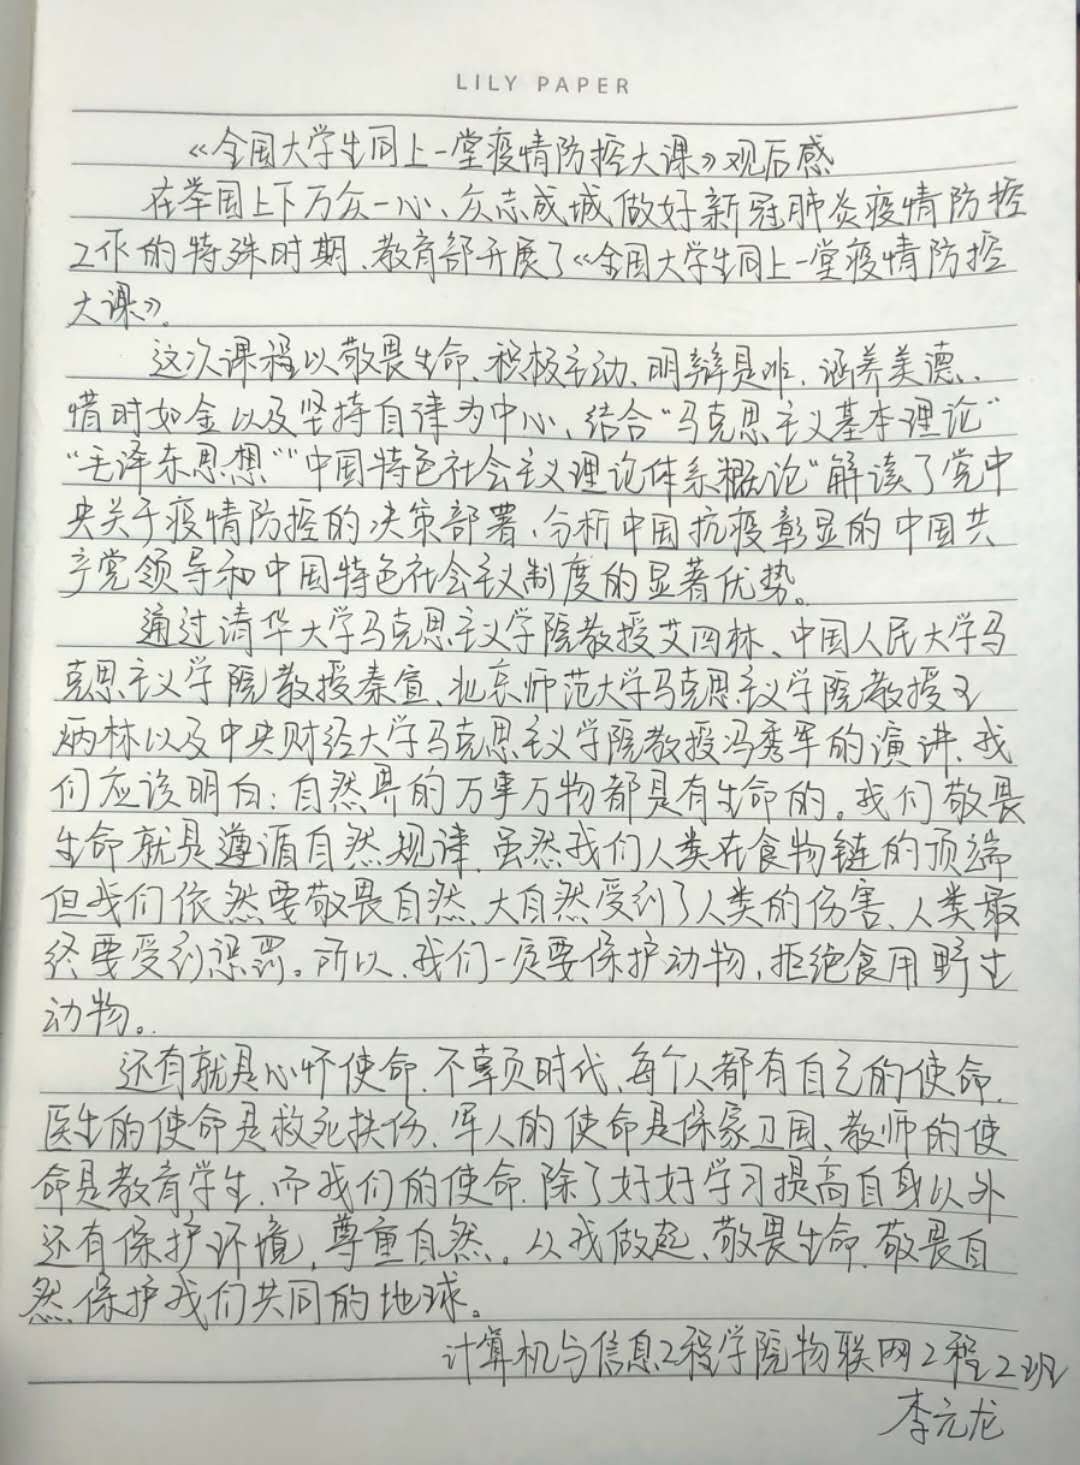 LILY PAPER
《全国大学生同上一堂疫情防控大课》观后感
在举国上下万众一心、众志成城做好新冠肺炎疫情防控
工作的特殊时期,教育部开展了《全国大学生同上一堂疫情防控
大课》.
这次课程以敬畏生命、积极主动、明辩是非、涵养美德、
惜时如金以及坚持自律为中心、结合“马克思主义基本理论”
“毛泽东思想”“中国特色社会主义理论体系概论”解读了党中
央关于疫情防控的决策部署,分析中国抗疫彰显的中国共
产党领导和中国特色社会主义制度的显著优势。
通过清华大学马克思主义学院教授艾四林、中国人民大学马
克思主义学院教授秦宣、北京师范大学马克思主义学院教授王
炳林以及中央财经大学马克思主义学院教授冯秀军的演讲,我
们应该明白:自然界的万事万物都是有生命的。我们敬畏
生命就是遵循自然规律,虽然我们人类在食物链的顶端
但我们依然要敬畏自然,大自然受到了人类的伤害,人类最
终要受到惩罚。所以,我们一定要保护动物,拒绝食用野生
动物。
还有就是心怀使命,不辜负时代,每个人都有自己的使命,
医生的使命是救死扶伤,军人的使命是保家卫国,教师的使
命是教育学生,而我们的使命,除了好好学习提高自身以外
还有保护环境,尊重自然。从我做起,敬畏生命,敬畏自
然,保护我们共同的地球。
计算机与信息工程学院物联网工程2班
李元龙